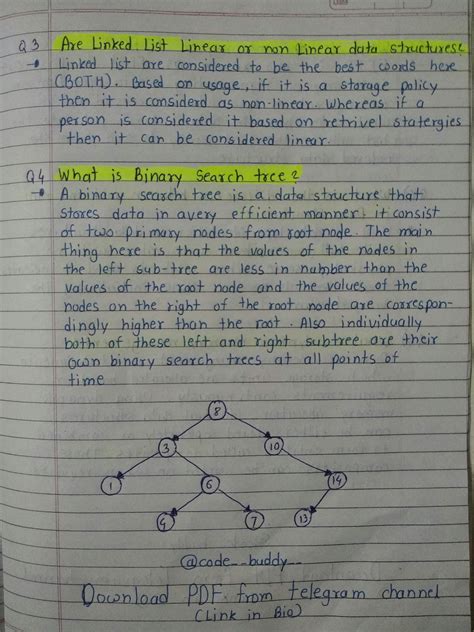 Q3 Are Linked List Linear or non Linear data structures?
→ Linked list are considered to be the best words here
(BOTH). Based on usage, if it is a storage policy
then it is considerd as non-linear. Whereas if a
person is considered it based on retrivel statergies
then it can be considered linear.
Q4 What is Binary Search tree?
→ A binary search tree is a data structure that
stores data in avery efficient manner: it consist
of two primary nodes from root node. The main
thing here is that the values of the nodes in
the left sub-tree are less in number than the
values of the root node and the values of the
nodes on the right of the root node are correspon-
dingly higher than the root. Also individually
both of these left and right subtree are their
own binary search trees at all points of
time
8
3 10
1 6 14
4 7 13
@code__buddy__
Download PDF from telegram channel
(Link in Bio)